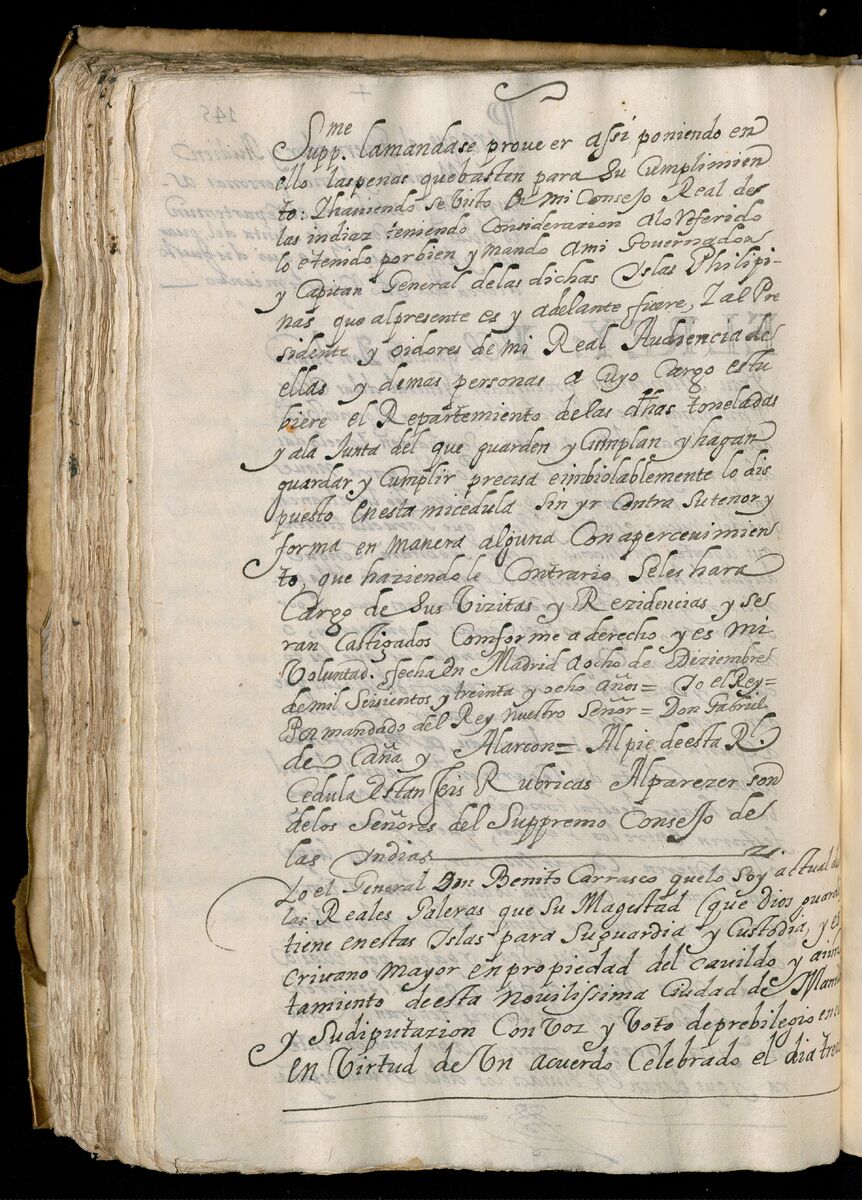 Supp.me lamandase proveer assi poniendo en
ello laspenas quebasten para Su Cumplimien
to: Ihaviendose Visto En mi Consejo Real de
las indiaz teniendo Considerazion alo Referido
lo etenido porbien y mando Ami Governador
y Capitan General delas dichas Yslas Philipi-
nas que alpresente es y adelante fuere, Ial Pre
sidente y oidores de mi Real Audiencia de
ellas y demas personas a Cuyo Cargo estu
biere el Repartemiento delas dhas toneladas
y ala Junta del que guarden y Cumplan y hagan
guardar y Cumplir precisa einbiolablemente lo dis
puesto Enesta micedula Sin yr Contra Sutenor y
forma en manera alguna Con apercevimien
to, que haziendo le Contrario Seles hara
Cargo de Sus Vizitas y Rezidencias y se
ran Castigados Comforme a derecho y es mi
Voluntad. fecha En Madrid aocho de Diziembre
de mil Seisientos y treinta y ocho años= Yo el Rey=
Por mandado del Rey nuestro Señor= Don Gabriel
de Caña y Alarcon= Alpie deesta Rl.
Cedula Estan Seis Rubricas Alparezer son
delos Señores del Suppremo Consejo de
las Indias
Yo el General Don Benito Carrasco quelo Soy actual de
las Reales Galeras que Su Magestad (que Dios guarde
tiene enestas Islas para Suguardia y Custodia, y es
crivano mayor enpropiedad del cavildo y aiun
tamiento deesta novilissima Ciudad de Mani
y Sudiputazion Con Voz y Voto deprebilegio en
En Virtud de Un acuerdo Celebrado el dia tre